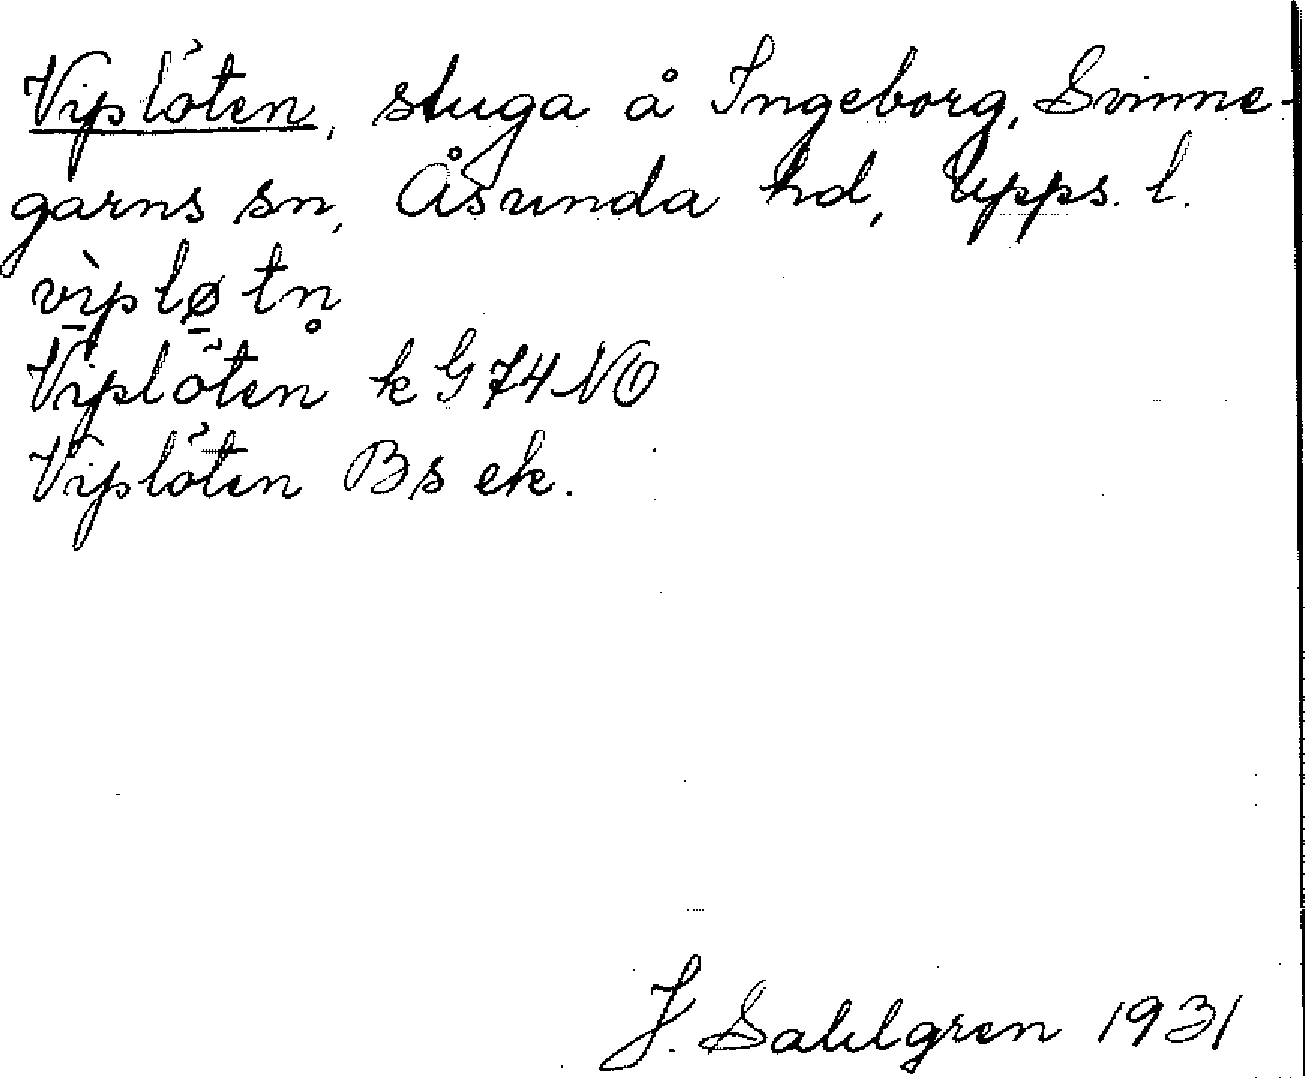 Viplöten, stuga å Ingeborg, Svinne-
garns sn, Åsunda hd, Upps. l.
vı̀pløtn̥
Viplöten k G 74 NO
Viplöten Bs ek.
J. Sahlgren 1931